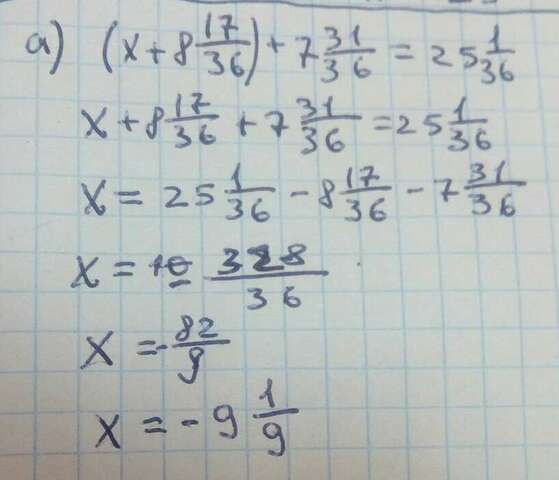 а) (x + 8 17/36) + 7 31/36 = 25 1/36
x + 8 17/36 + 7 31/36 = 25 1/36
x = 25 1/36 - 8 17/36 - 7 31/36
x = 328/36
x = - 82/9
x = - 9 1/9